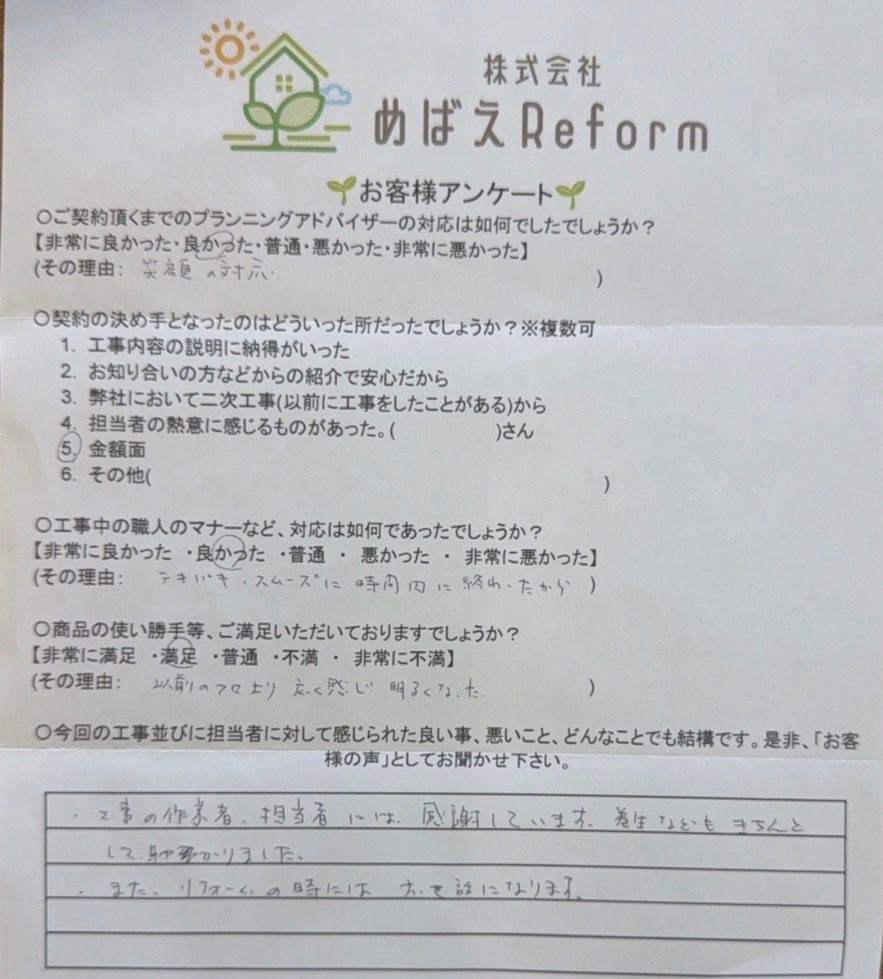 株式会社
めばえReform
お客様アンケート
〇ご契約頂くまでのプランニングアドバイザーの対応は如何でしたでしょうか？
【非常に良かった・良かった・普通・悪かった・非常に悪かった】
(その理由： 笑顔の対応 )
〇契約の決め手となったのはどういった所だったでしょうか？※複数可
1. 工事内容の説明に納得がいった
2. お知り合いの方などからの紹介で安心だから
3. 弊社において二次工事(以前に工事をしたことがある)から
4. 担当者の熱意に感じるものがあった。( )さん
5. 金額面
6. その他( )
〇工事中の職人のマナーなど、対応は如何であったでしょうか？
【非常に良かった ・良かった ・普通 ・ 悪かった ・ 非常に悪かった】
(その理由： テキパキ、スムーズに時間内に終わったから )
〇商品の使い勝手等、ご満足いただいておりますでしょうか？
【非常に満足 ・満足 ・普通 ・不満 ・ 非常に不満】
(その理由： 以前のフロより広く感じ明るくなった )
〇今回の工事並びに担当者に対して感じられた良い事、悪いこと、どんなことでも結構です。是非、「お客
様の声」としてお聞かせ下さい。
・工事の作業者、担当者には、感謝しています。養生などもきちんと
して、助かりました。
・また、リフォームの時にはお世話になります。